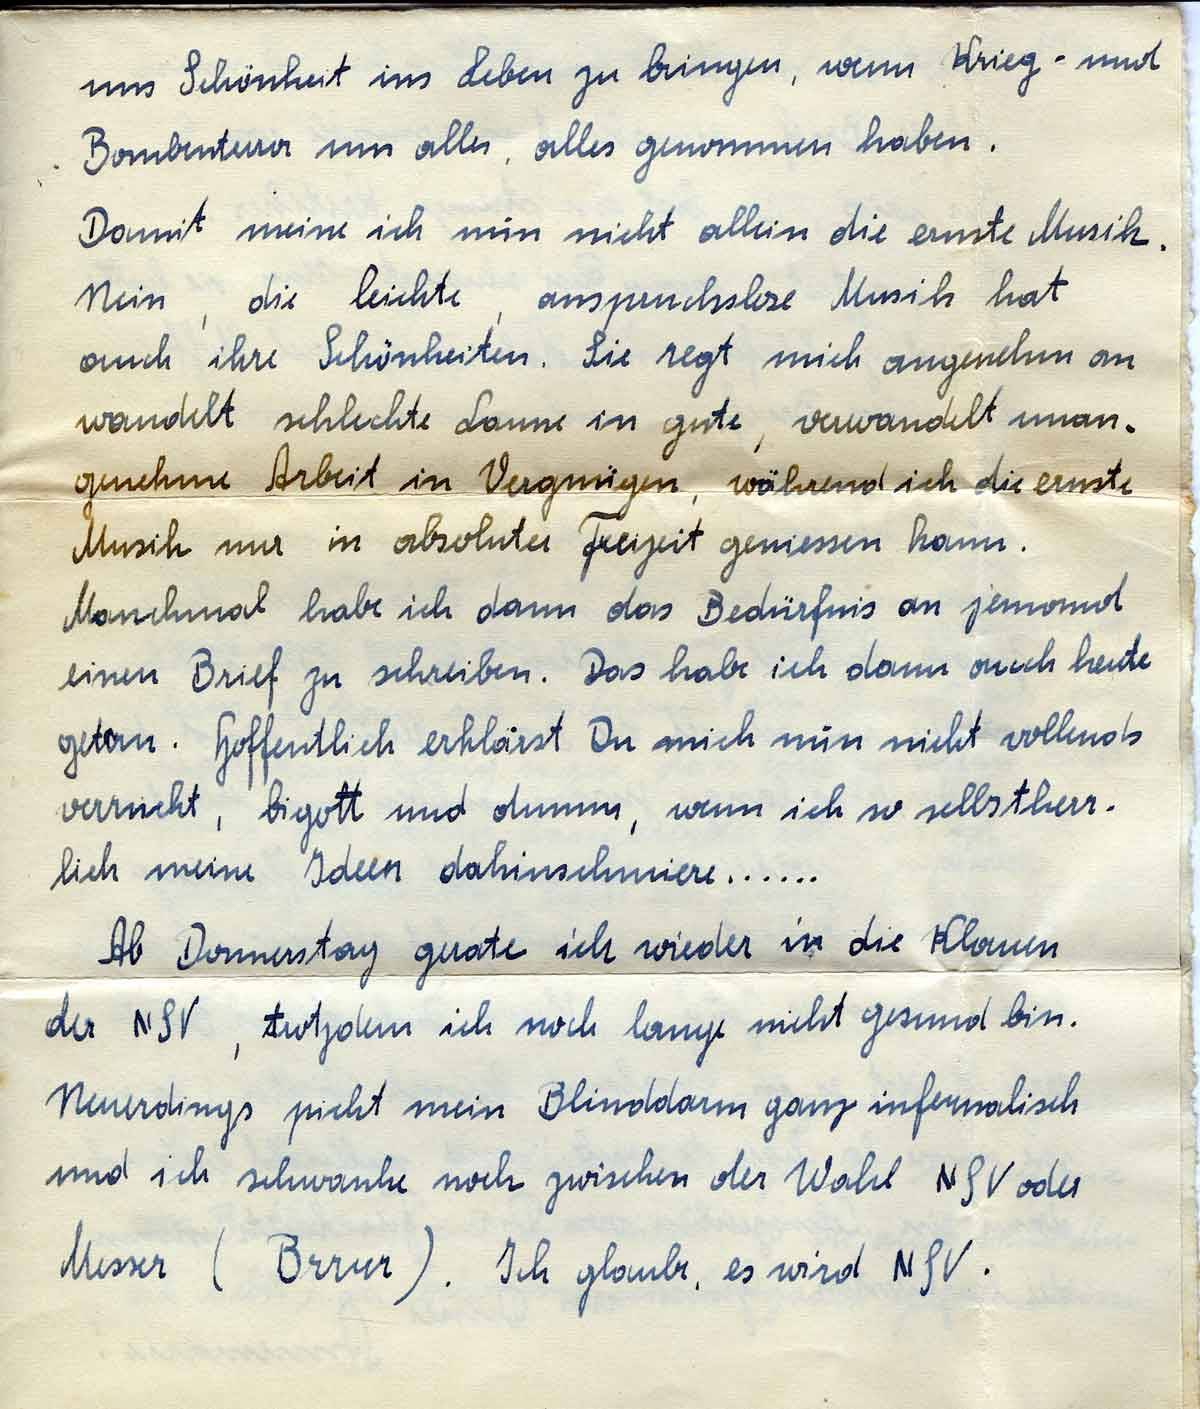 uns Schönheit ins Leben zu bringen, wenn Krieg - und
Bombenterror uns alles, alles genommen haben.
Damit meine ich nun nicht allein die ernste Musik.
Nein, die leichte, anspruchslose Musik hat
auch ihre Schönheiten. Sie regt mich angenehm an
wandelt schlechte Laune in gute, verwandelt unan-
genehme Arbeit in Vergnügen, während ich die ernste
Musik nur in absoluter Freizeit geniessen kann.
Manchmal habe ich dann das Bedürfnis an jemand
einen Brief zu schreiben. Das habe ich dann auch heute
getan. Hoffentlich erklärst Du mich nun nicht vollends
verrückt, bigott und dumm, wenn ich so selbstherr-
lich meine Ideen dahinschmiere......
Ab Donnerstag gerate ich wieder in die Klauen
der NSV, trotzdem ich noch lange nicht gesund bin.
Neuerdings pickt mein Blinddarm ganz infernalisch
und ich schwanke noch zwischen der Wahl NSV oder
Messer (Brrrr). Ich glaube, es wird NSV.